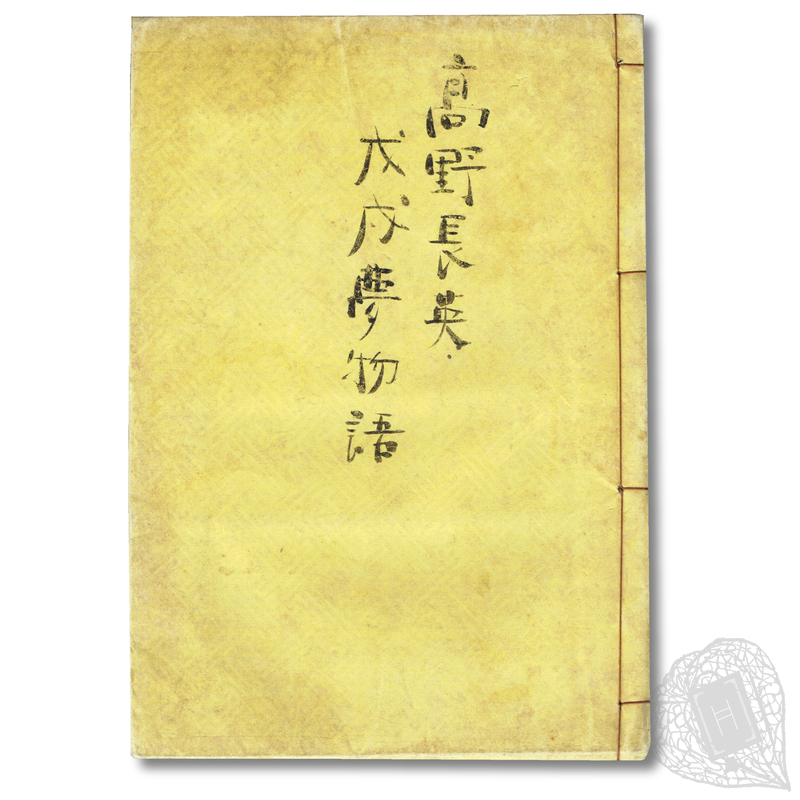 高野長英
戊戌夢物語
H